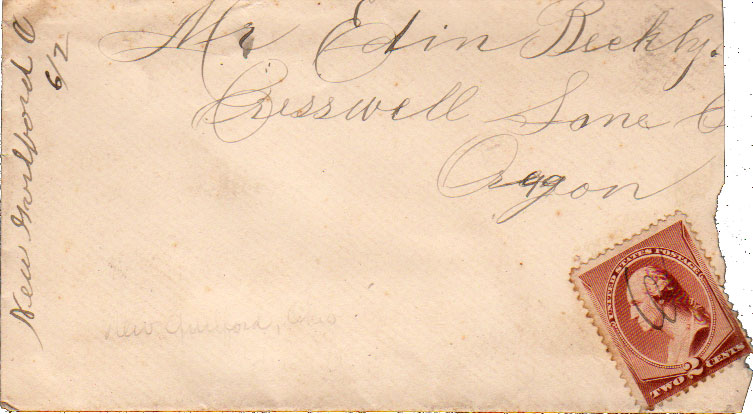 Mr Edin Beckly.
Cresswell Lane C
Oregon
New Guilford O
6/2
New Guilford, Ohio
UNITED STATES POSTAGE
TWO 2 CENTS